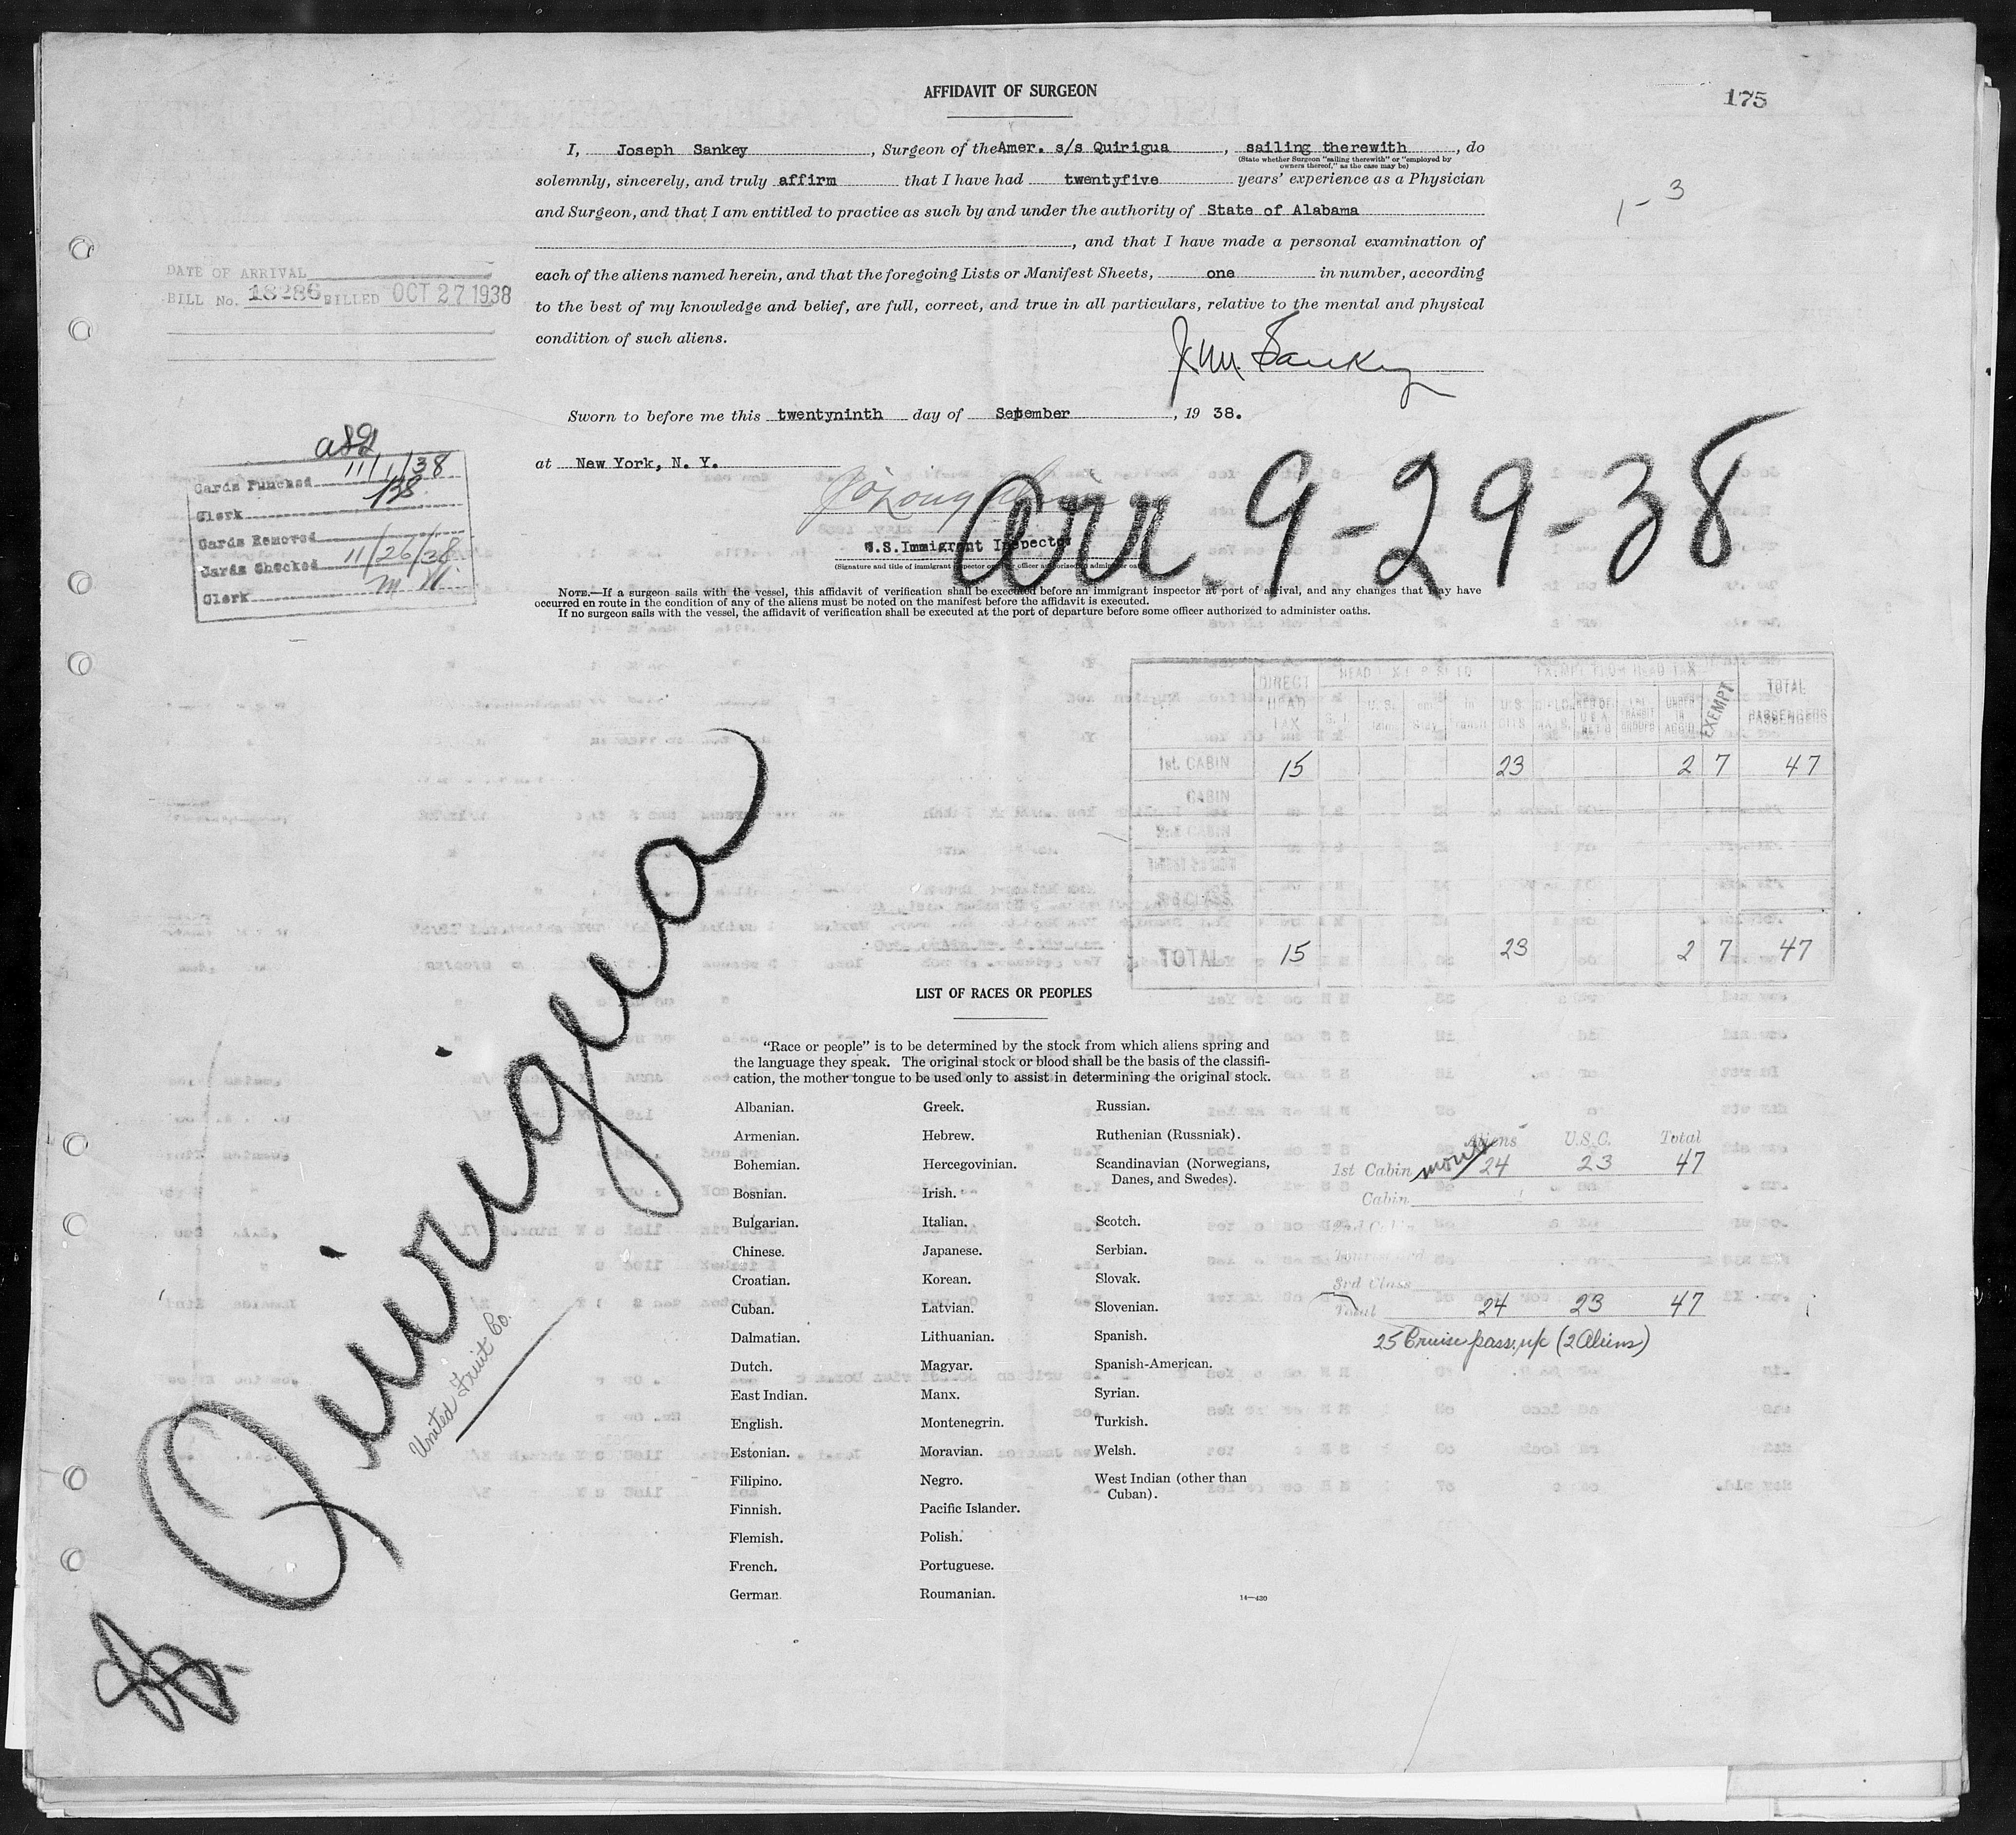 AFFIDAVIT OF SURGEON
175
I, Joseph Sankey, Surgeon of the Amer. s/s Quirigua, sailing therewith, do
(State whether Surgeon "sailing therewith" or "employed by
owners thereof," as the case may be)
solemnly, sincerely, and truly affirm that I have had twentyfive years' experience as a Physician
1-3
and Surgeon, and that I am entitled to practice as such by and under the authority of State of Alabama
, and that I have made a personal examination of
each of the aliens named herein, and that the foregoing Lists or Manifest Sheets, one in number, according
to the best of my knowledge and belief, are full, correct, and true in all particulars, relative to the mental and physical
condition of such aliens.
DATE OF ARRIVAL
BILL No. 18286 BILLED OCT 27 1938
J.M. Sankey
Sworn to before me this twentyninth day of September, 19 38.
at New York, N. Y.
Arr. 9-29-38
U.S. Immigrant Inspector
(Signature and title of immigrant inspector or other officer authorized to administer oaths)
Cards Punched 11/1/38
Clerk
Cards Removed
Cards Checked 11/26/38
Clerk M.W.
NOTE.—If a surgeon sails with the vessel, this affidavit of verification shall be executed before an immigrant inspector at port of arrival, and any changes that may have
occurred en route in the condition of any of the aliens must be noted on the manifest before the affidavit is executed.
If no surgeon sails with the vessel, the affidavit of verification shall be executed at the port of departure before some officer authorized to administer oaths.
DIRECT HEAD TAX EXEMPT FROM HEAD TAX TOTAL PASSENGERS
U.S. CITS EXEMPT
1st. CABIN 15 23 2 7 47
CABIN
2nd CABIN
3rd CLASS
TOTAL 15 23 2 7 47
Quirigua
United Fruit Co.
LIST OF RACES OR PEOPLES
"Race or people" is to be determined by the stock from which aliens spring and
the language they speak. The original stock or blood shall be the basis of the classifi-
cation, the mother tongue to be used only to assist in determining the original stock.
Albanian.
Armenian.
Bohemian.
Bosnian.
Bulgarian.
Chinese.
Croatian.
Cuban.
Dalmatian.
Dutch.
East Indian.
English.
Estonian.
Filipino.
Finnish.
Flemish.
French.
German.
Greek.
Hebrew.
Hercegovinian.
Irish.
Italian.
Japanese.
Korean.
Latvian.
Lithuanian.
Magyar.
Manx.
Montenegrin.
Moravian.
Negro.
Pacific Islander.
Polish.
Portuguese.
Roumanian.
Russian.
Ruthenian (Russniak).
Scandinavian (Norwegians,
Danes, and Swedes).
Scotch.
Serbian.
Slovak.
Slovenian.
Spanish.
Spanish-American.
Syrian.
Turkish.
Welsh.
West Indian (other than
Cuban).
14—430
Aliens U.S.C. Total
1st Cabin 24 23 47
Cabin
2nd Cabin
3rd Class
Total 24 23 47
25 Cruise pass. (2 Aliens)